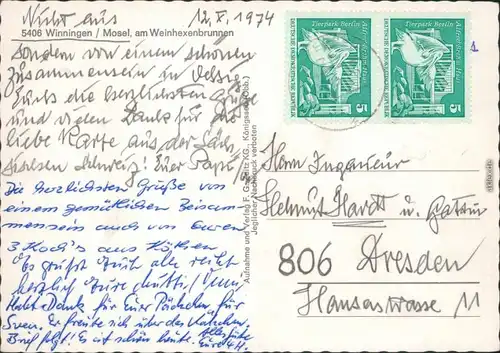 Nicht aus 12.X.1974
5406 Winningen / Mosel, am Weinhexenbrunnen
sondern von einem schönen
Zusammensein in
die herzlichsten Grüße
und vielen Dank für die
liebe Karte aus der Säch-
sischen Schweiz! Euer Papi
Die herzlichsten Grüße von
einem gemütlichen Beisam-
mensein auch von Euren
3 Koch's aus Köthen
Es grüßt Euch alle recht
herzlich Eure Mutti /
Habt Dank für Euer Päckchen für
Sven. Er freute sich über das Kätzchen.
Brief folgt! Es ist schön heute. Alles Gute
Eure
Aufnahme und Verlag F. KG., Königswinter
Jeglicher Nachdruck verboten
Tierpark Berlin
Alfred-Brehm-Haus
DEUTSCHE DEMOKRATISCHE REPUBLIK
5
Tierpark Berlin
Alfred-Brehm-Haus
DEUTSCHE DEMOKRATISCHE REPUBLIK
5
Herrn Ingenieur
Helmut Hardt u. Gattin
806 Dresden
Hansastrasse 11